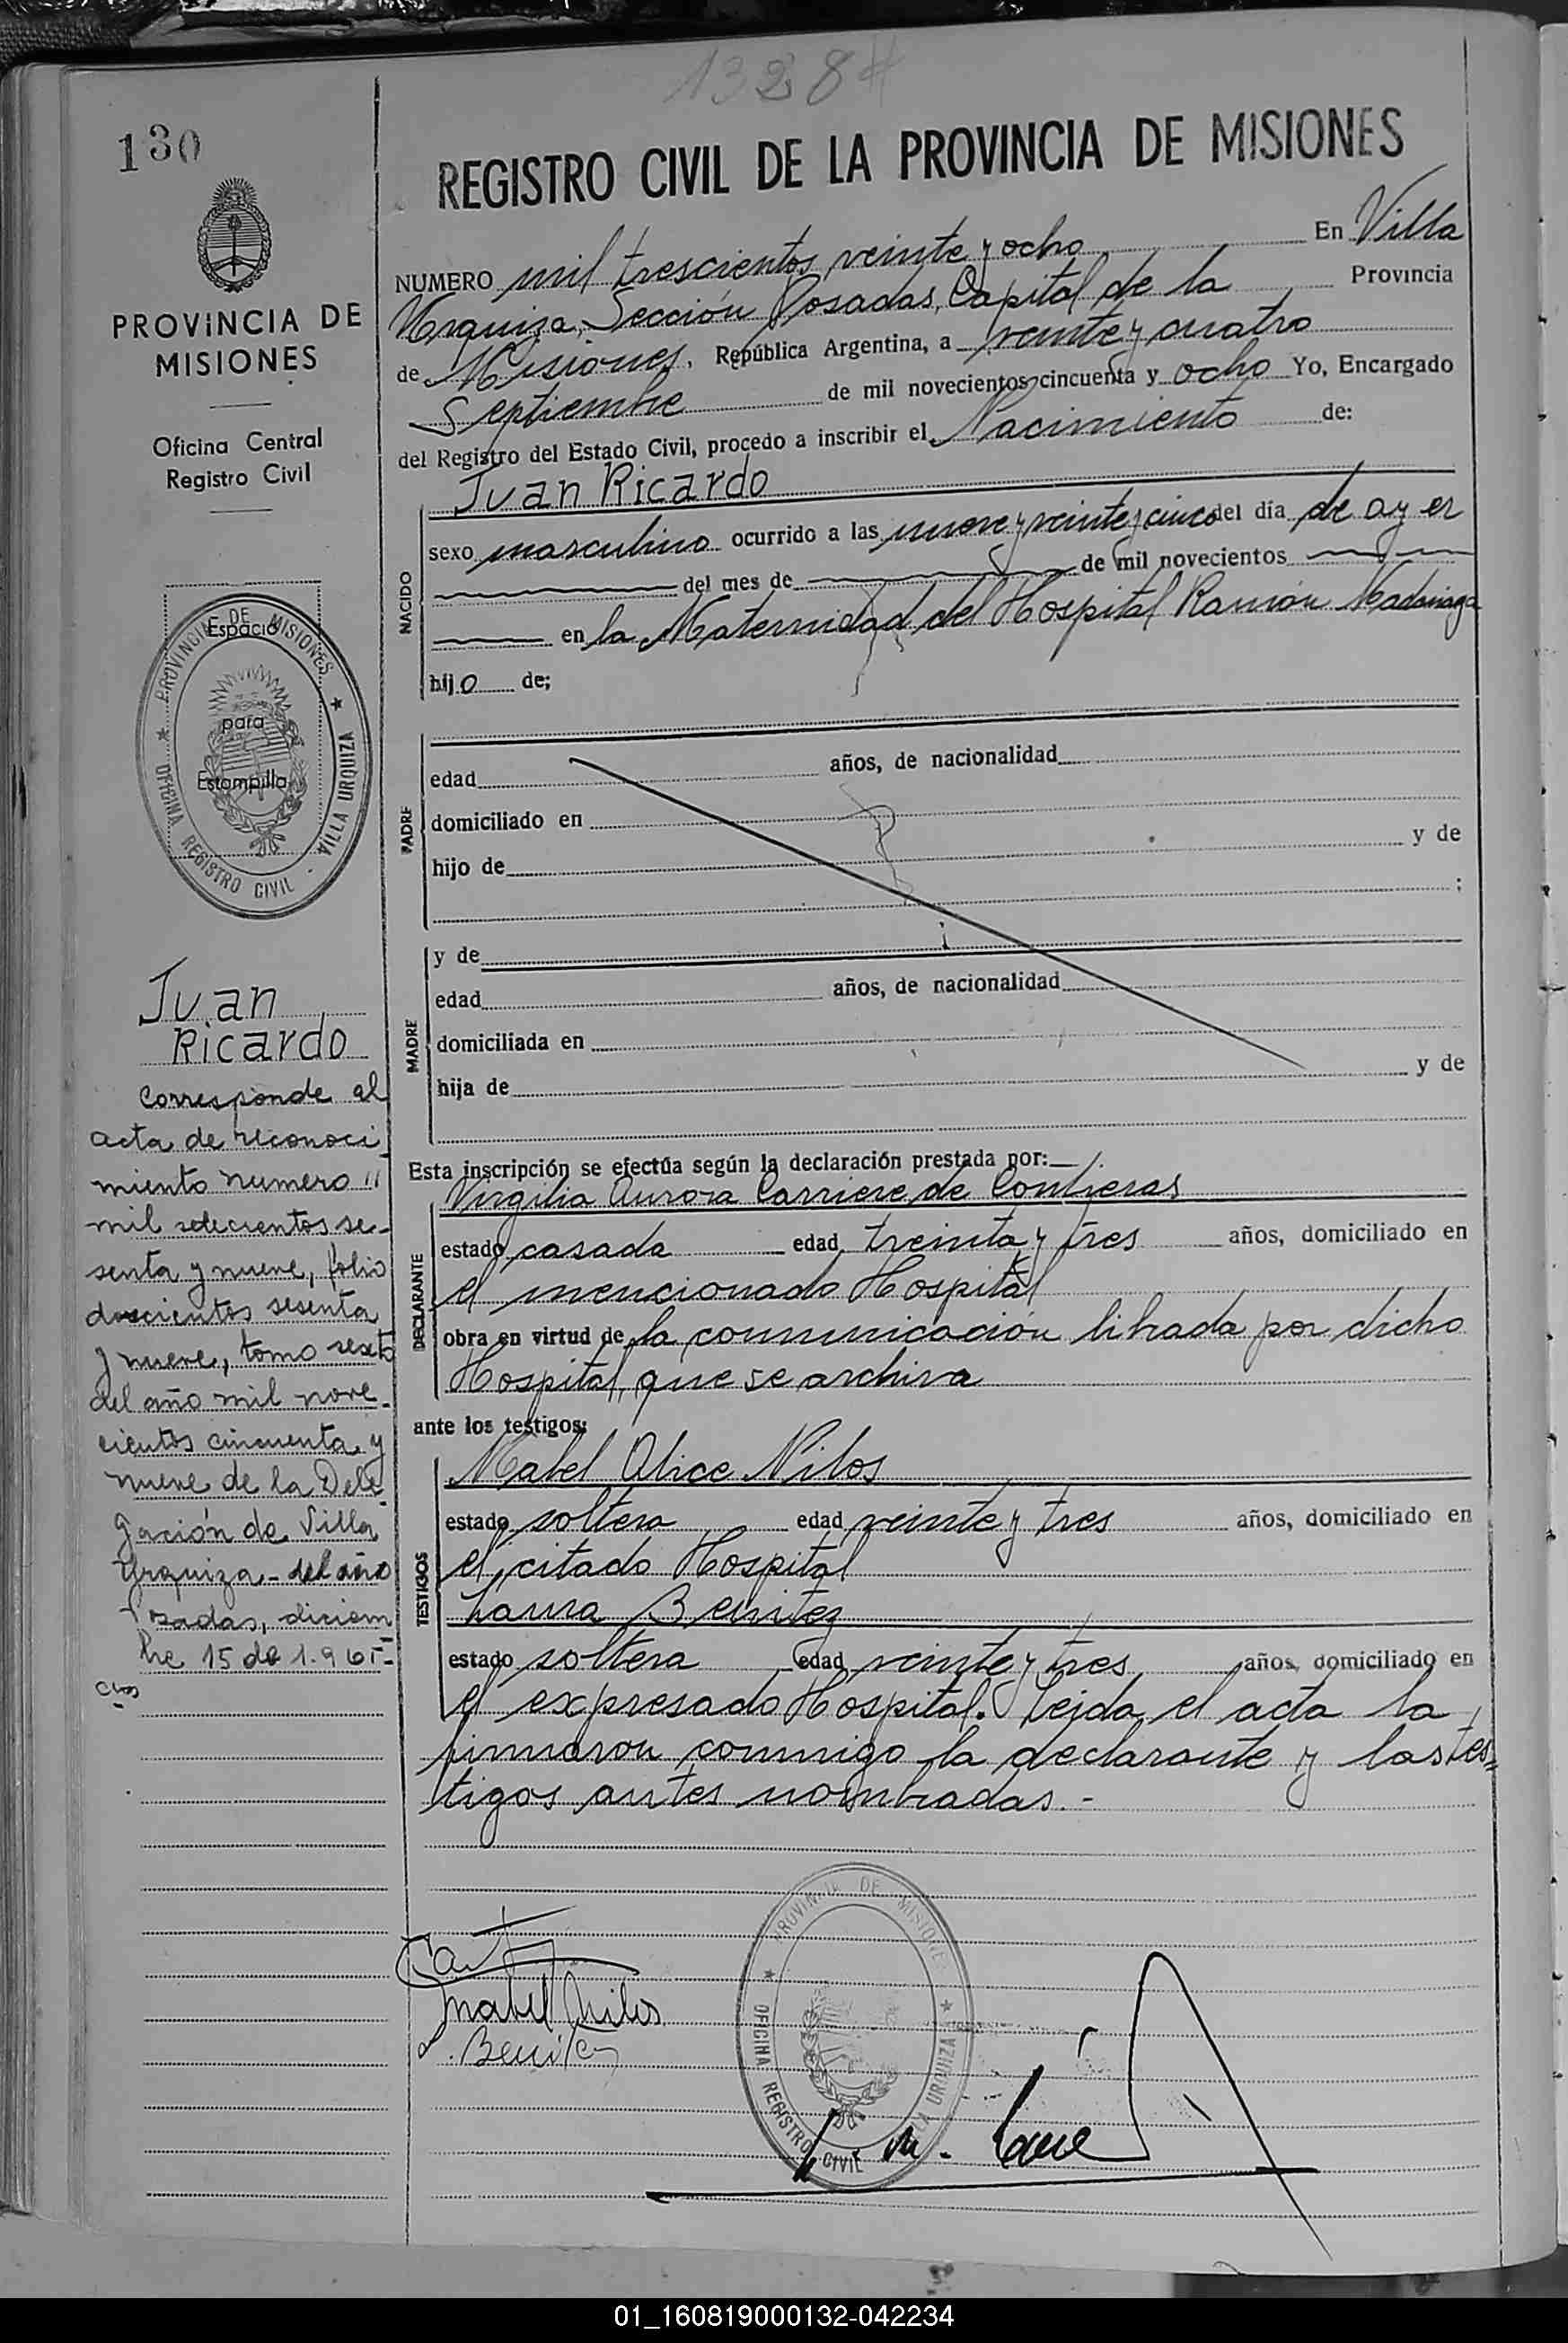 1328#
130
REGISTRO CIVIL DE LA PROVINCIA DE MISIONES
PROVINCIA DE
MISIONES
Oficina Central
Registro Civil
NUMERO mil trescientos veinte y ocho En Villa
Urquiza, Sección Posadas, Capital de la Provincia
de Misiones, República Argentina, a veinte y cuatro
Septiembre de mil novecientos cincuenta y ocho Yo, Encargado
del Registro del Estado Civil, procedo a inscribir el Nacimiento de:
Juan Ricardo
NACIDO
sexo masculino ocurrido a las nueve y veinte y cinco del día de ayer
del mes de de mil novecientos
en la Maternidad del Hospital Ramón Madariaga
hijo de;
PROVINCIA DE MISIONES
OFICINA REGISTRO CIVIL - VILLA URQUIZA
Espacio
para
Estampilla
PADRE
edad años, de nacionalidad
domiciliado en
hijo de y de
;
MADRE
y de
edad años, de nacionalidad
domiciliada en
hija de y de
Juan
Ricardo
Corresponde al
acta de reconoci
miento numero
mil setecientos se-
senta y nueve, folio
doscientos sesenta
y nueve, tomo sexto
del año mil nove-
cientos cincuenta y
nueve de la Dele
gación de Villa
Urquiza - del año
Posadas, diciem
bre 15 de 1.961-
Esta inscripción se efectúa según la declaración prestada por:
Virgilia Aurora Carriere de Contreras
DECLARANTE
estado casada edad treinta y tres años, domiciliado en
el mencionado Hospital
obra en virtud de la comunicación librada por dicho
Hospital, que se archiva
ante los testigos:
TESTIGOS
Mabel Alice Nilos
estado soltera edad veinte y tres años, domiciliado en
el citado Hospital
Laura Benitez
estado soltera edad veinte y tres años, domiciliado en
el expresado Hospital. Leida el acta la
firmaron conmigo la declarante y las tes=
tigos antes nombradas.-
Mabel Nilos
L. Benitez
PROVINCIA DE MISIONES
OFICINA REGISTRO CIVIL VILLA URQUIZA
01_160819000132-042234